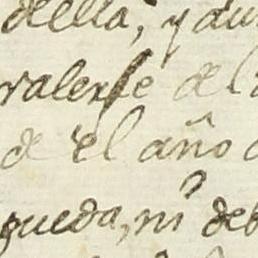 della, y au
valerse del
de el año
queda, ni deb